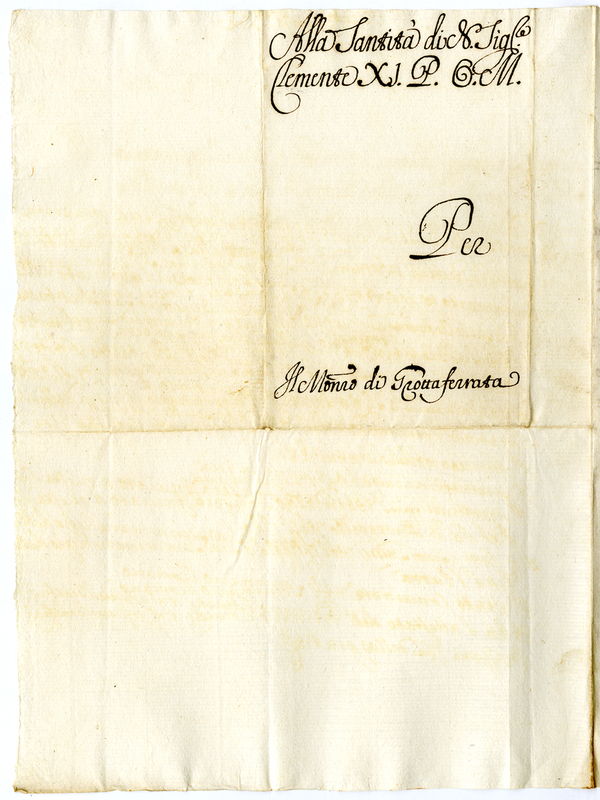 Alla Santità di N. Sig.re
Clemente XI. P. O. M.
Per
Il Monrio di Grottaferrata